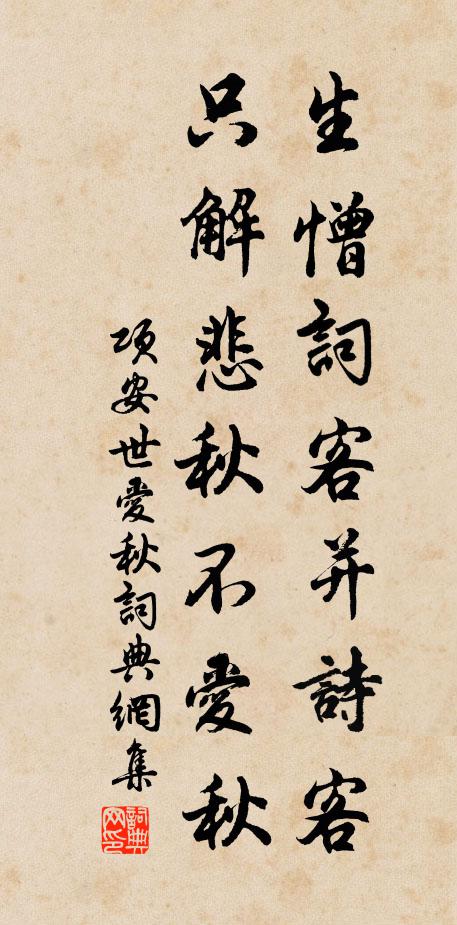 生憎詞客并詩客
只解悲秋不愛秋
項安世愛秋詞典網集
詞典網印